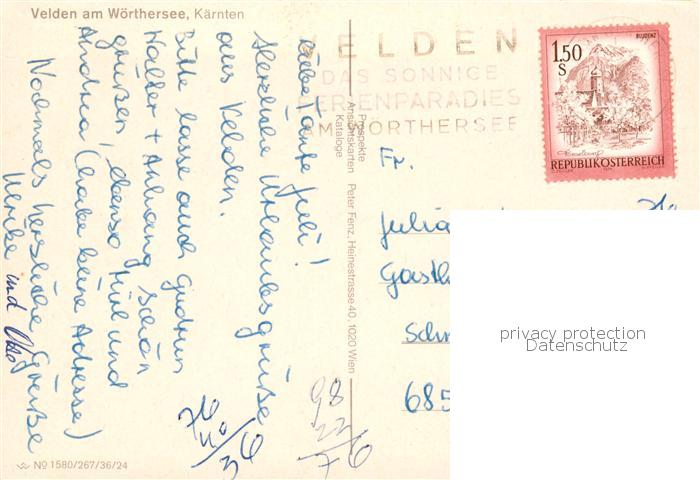 Velden am Wörthersee, Kärnten
VELDEN
DAS SONNIGE
FERIENPARADIES
AM WÖRTHERSEE
BLUDENZ
1.50
S
REPUBLIK ÖSTERREICH
Liebe Tante Juli!
Herzliche Urlaubsgrüße
aus Velden.
Bitte lasse auch Gudrun
Walter + Anhang schön
grüßen, ebenso und
Andrea! (habe keine Adresse)
Nochmals herzliche Grüße
Ulrike und
Prospekte
Ansichtskarten
Kataloge
Peter Fenz, Heinestrasse 40, 1020 Wien
Fr.
Julia
Gasth
Sch
685
privacy protection
Datenschutz
98
22
7/6
№ 1580/267/36/24